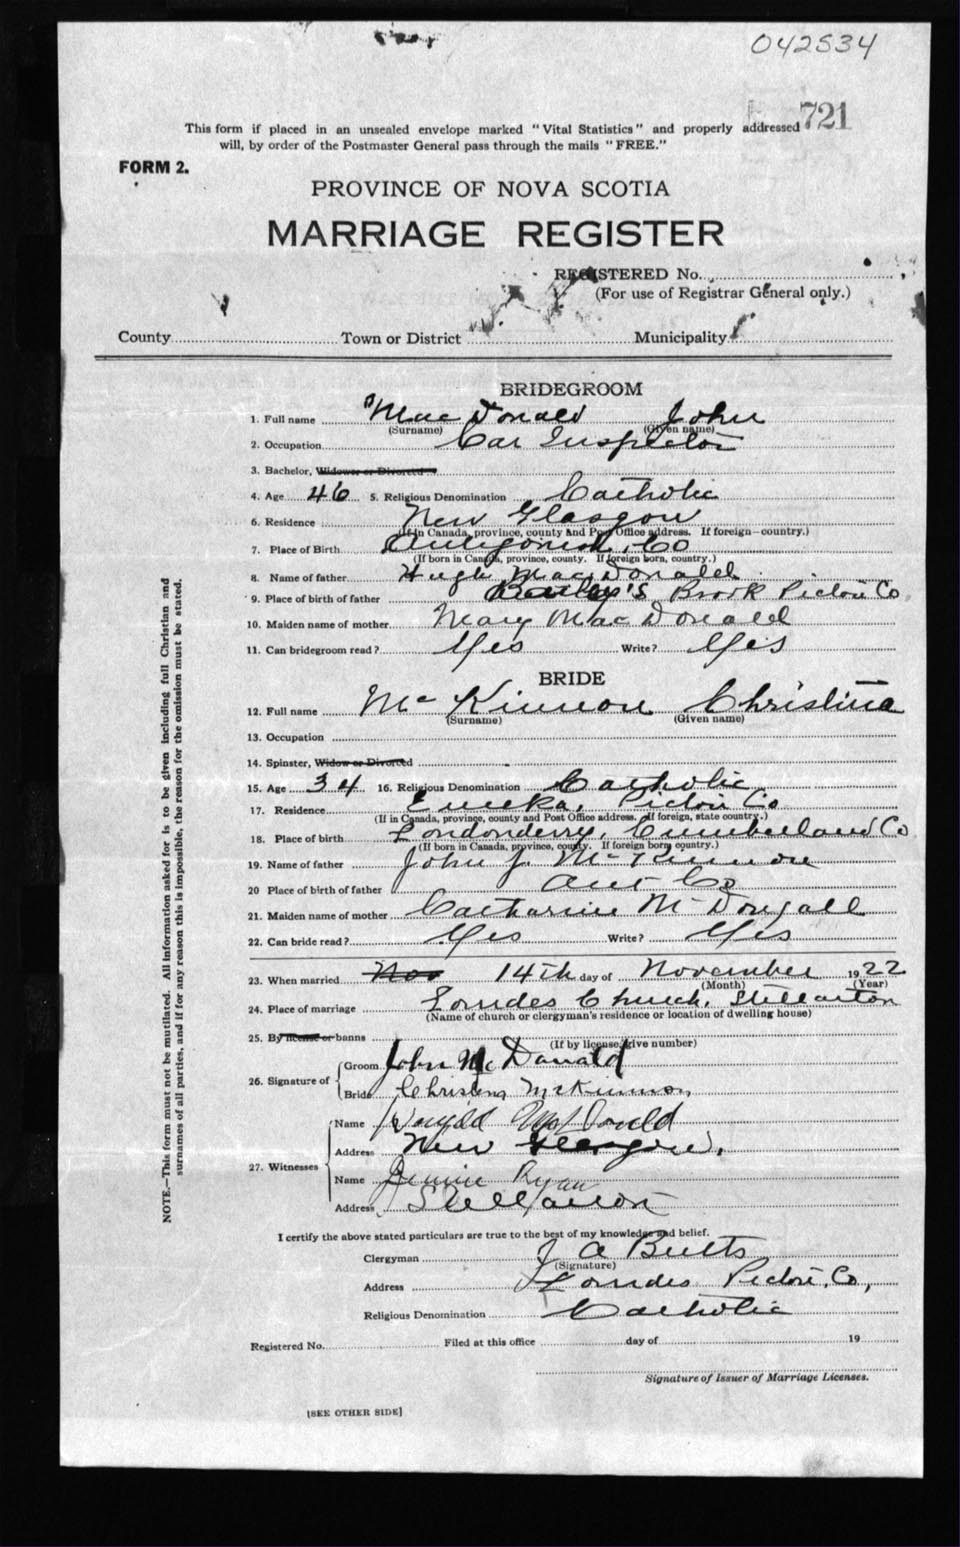 042534
721
This form if placed in an unsealed envelope marked "Vital Statistics" and properly addressed
will, by order of the Postmaster General pass through the mails "FREE."
FORM 2.
PROVINCE OF NOVA SCOTIA
MARRIAGE REGISTER
REGISTERED No.
(For use of Registrar General only.)
County Town or District Municipality
BRIDEGROOM
1. Full name MacDonald John
(Surname) (Given name)
2. Occupation Car Inspector
3. Bachelor, Widower or Divorced
4. Age 46 5. Religious Denomination Catholic
6. Residence New Glasgow
(If in Canada, province, county and Post Office address. If foreign—country.)
7. Place of Birth Antigonish, Co
(If born in Canada, province, county. If foreign born, country.)
8. Name of father Hugh MacDonald
9. Place of birth of father Bailey's Brook Pictou Co
10. Maiden name of mother Mary MacDonald
11. Can bridegroom read? Yes Write? Yes
BRIDE
12. Full name McKinnon Christina
(Surname) (Given name)
13. Occupation
14. Spinster, Widow or Divorced
15. Age 34 16. Religious Denomination Catholic
17. Residence Eureka, Pictou Co
(If in Canada, province, county and Post Office address. If foreign, state country.)
18. Place of birth Londonderry, Cumberland Co
(If born in Canada, province, county. If foreign born country.)
19. Name of father John J. McKinnon
20 Place of birth of father Ant Co
21. Maiden name of mother Catharine McDougall
22. Can bride read? Yes Write? Yes
23. When married Nov 14th day of November 1922
(Month) (Year)
24. Place of marriage Lourdes Church, Stellarton
(Name of church or clergyman's residence or location of dwelling house)
25. By license or banns
(If by license, give number)
26. Signature of Groom John McDonald
Bride Christina McKinnon
27. Witnesses
Name McDonald
Address New Glasgow.
Name Ryan
Address Stellarton
I certify the above stated particulars are true to the best of my knowledge and belief.
Clergyman J A Butts
(Signature)
Address Lourdes Pictou, Co,
Religious Denomination Catholic
Registered No. Filed at this office day of 19
Signature of Issuer of Marriage Licenses.
[SEE OTHER SIDE]
NOTE.—This form must not be mutilated. All information asked for is to be given including full Christian and
surnames of all parties, and if for any reason this is impossible, the reason for the omission must be stated.